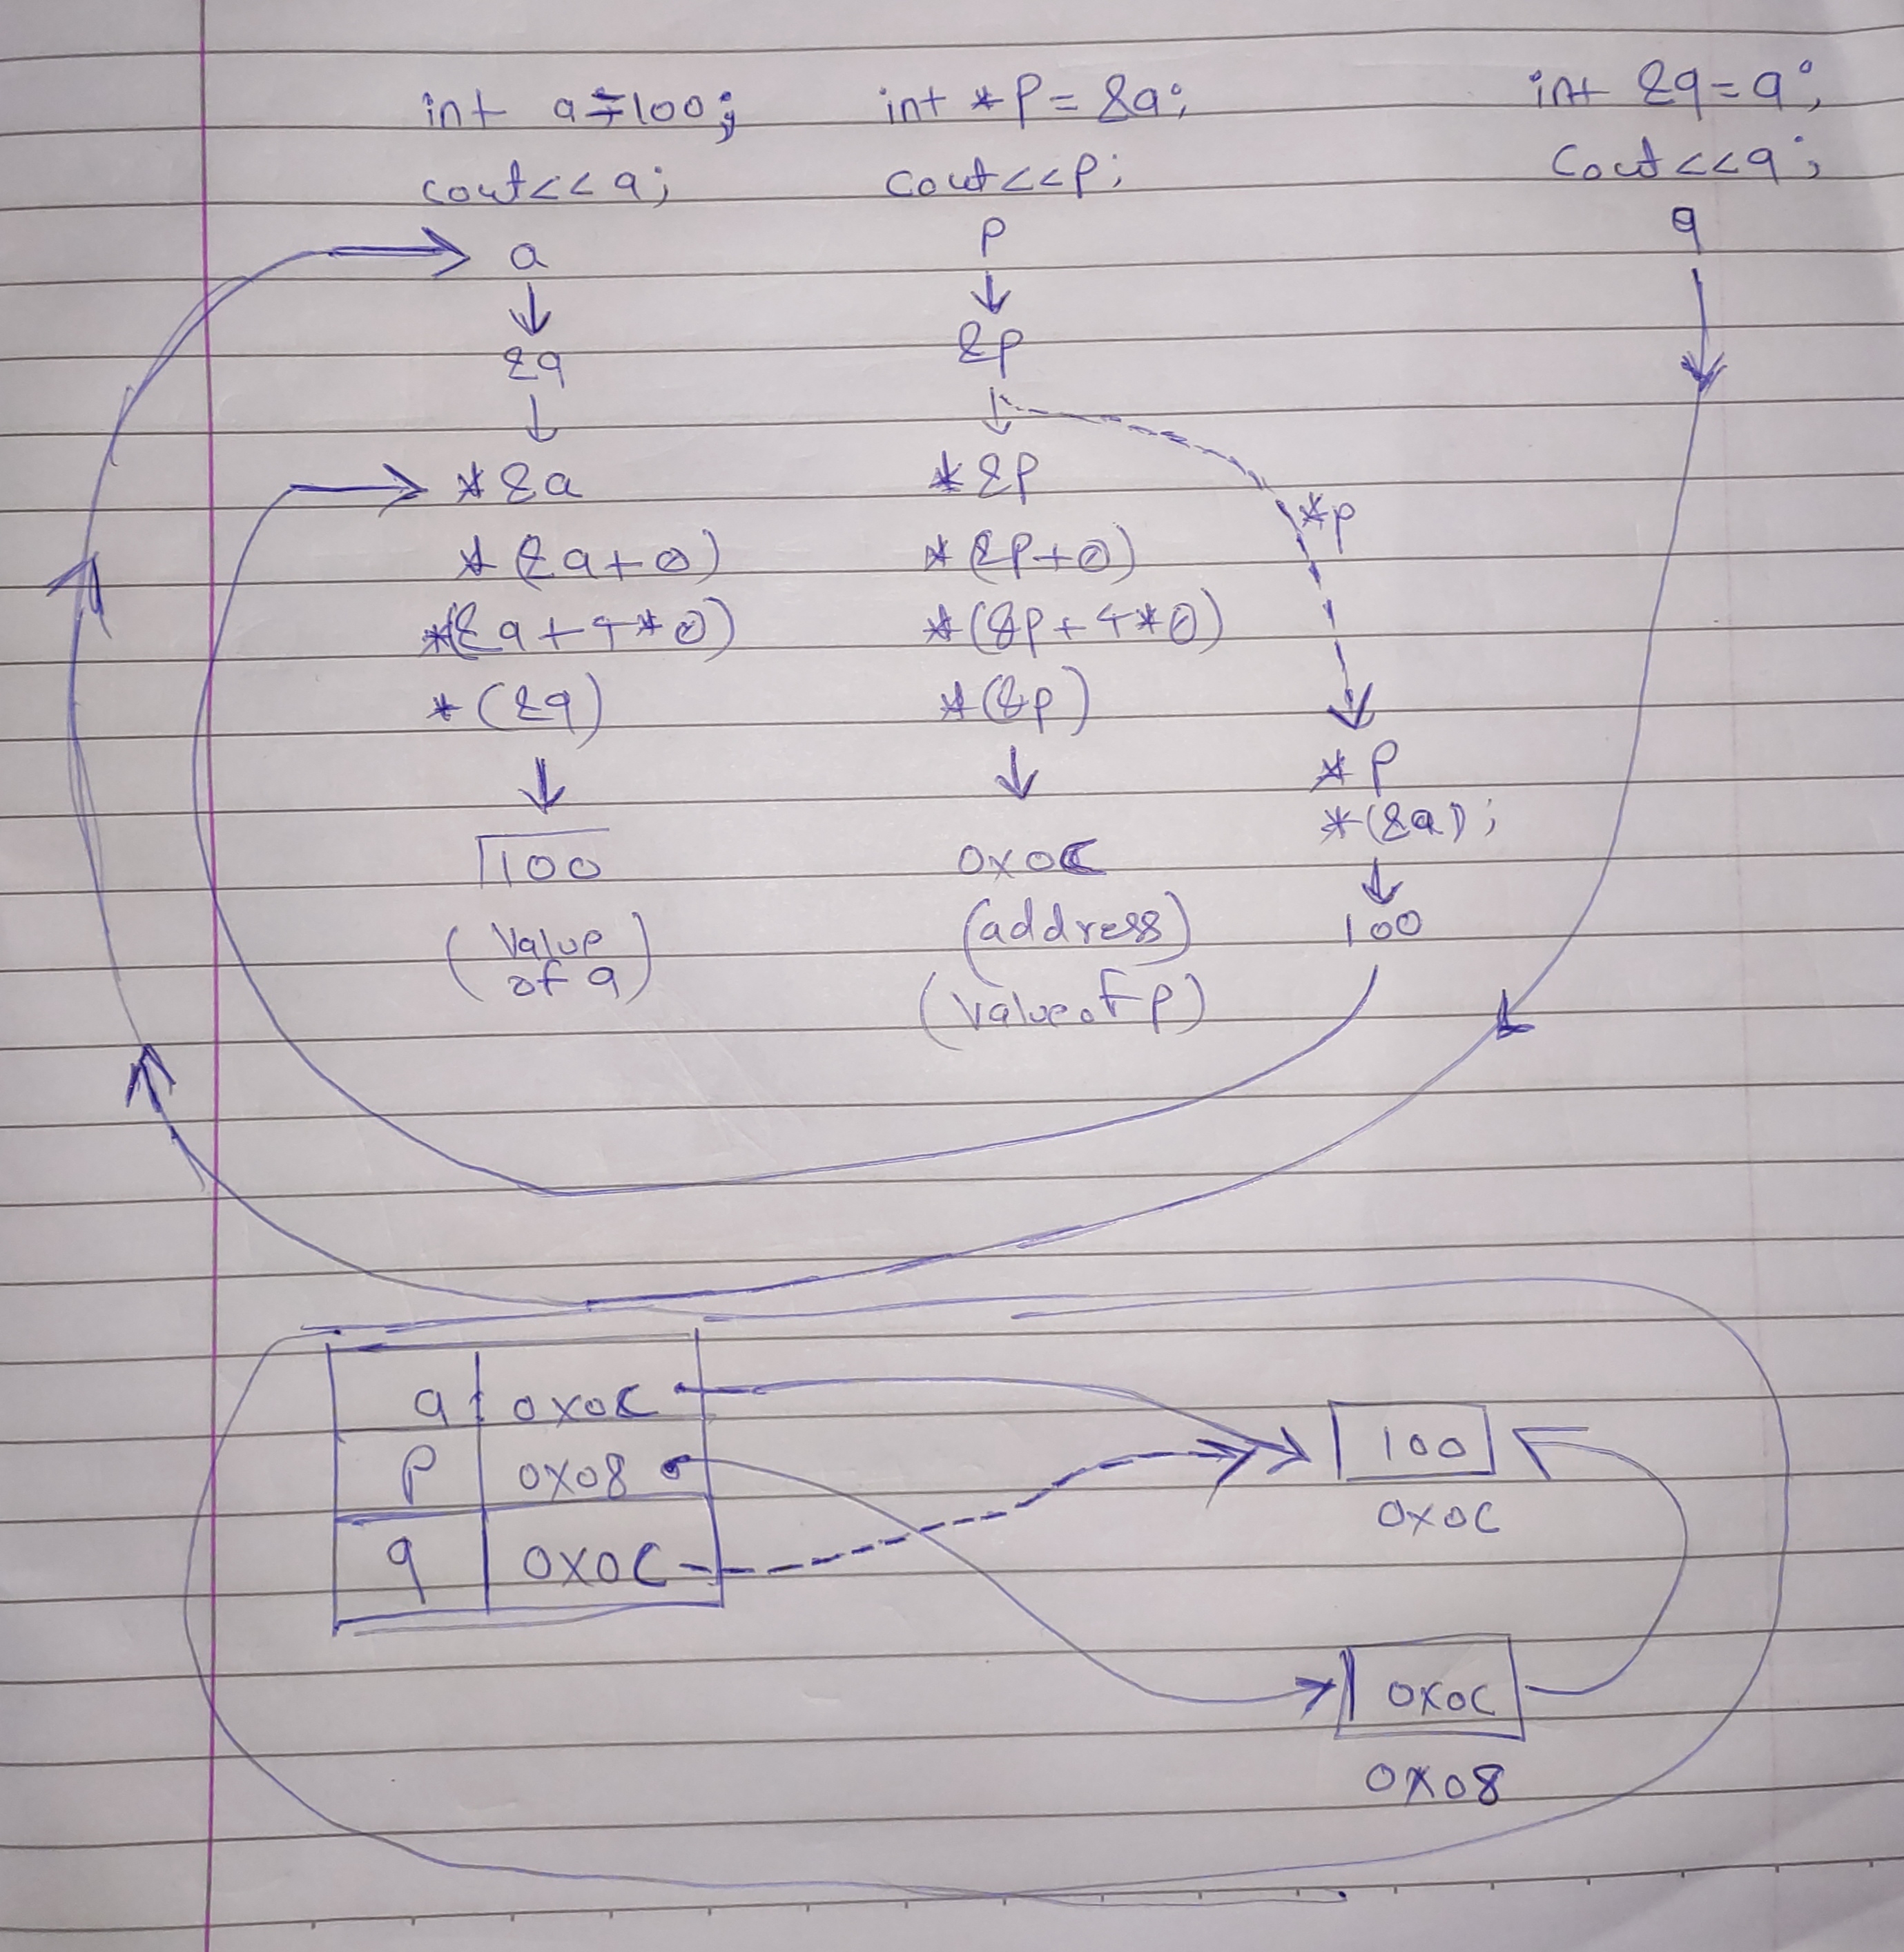 int a=100;
cout<<a;
a
&a
*&a
*(&a+0)
*(&a+4*0)
*(&a)
100
(Value
of a)
int *p=&a;
cout<<p;
p
&p
*&p
*(&p+0)
*(&p+4*0)
*(&p)
0x0C
(address)
(value of p)
*p
*p
*(&a);
100
int &q=a;
Cout<<q;
q
a 0x0C
p 0x08
q 0x0C
100
0x0C
0x0C
0x08